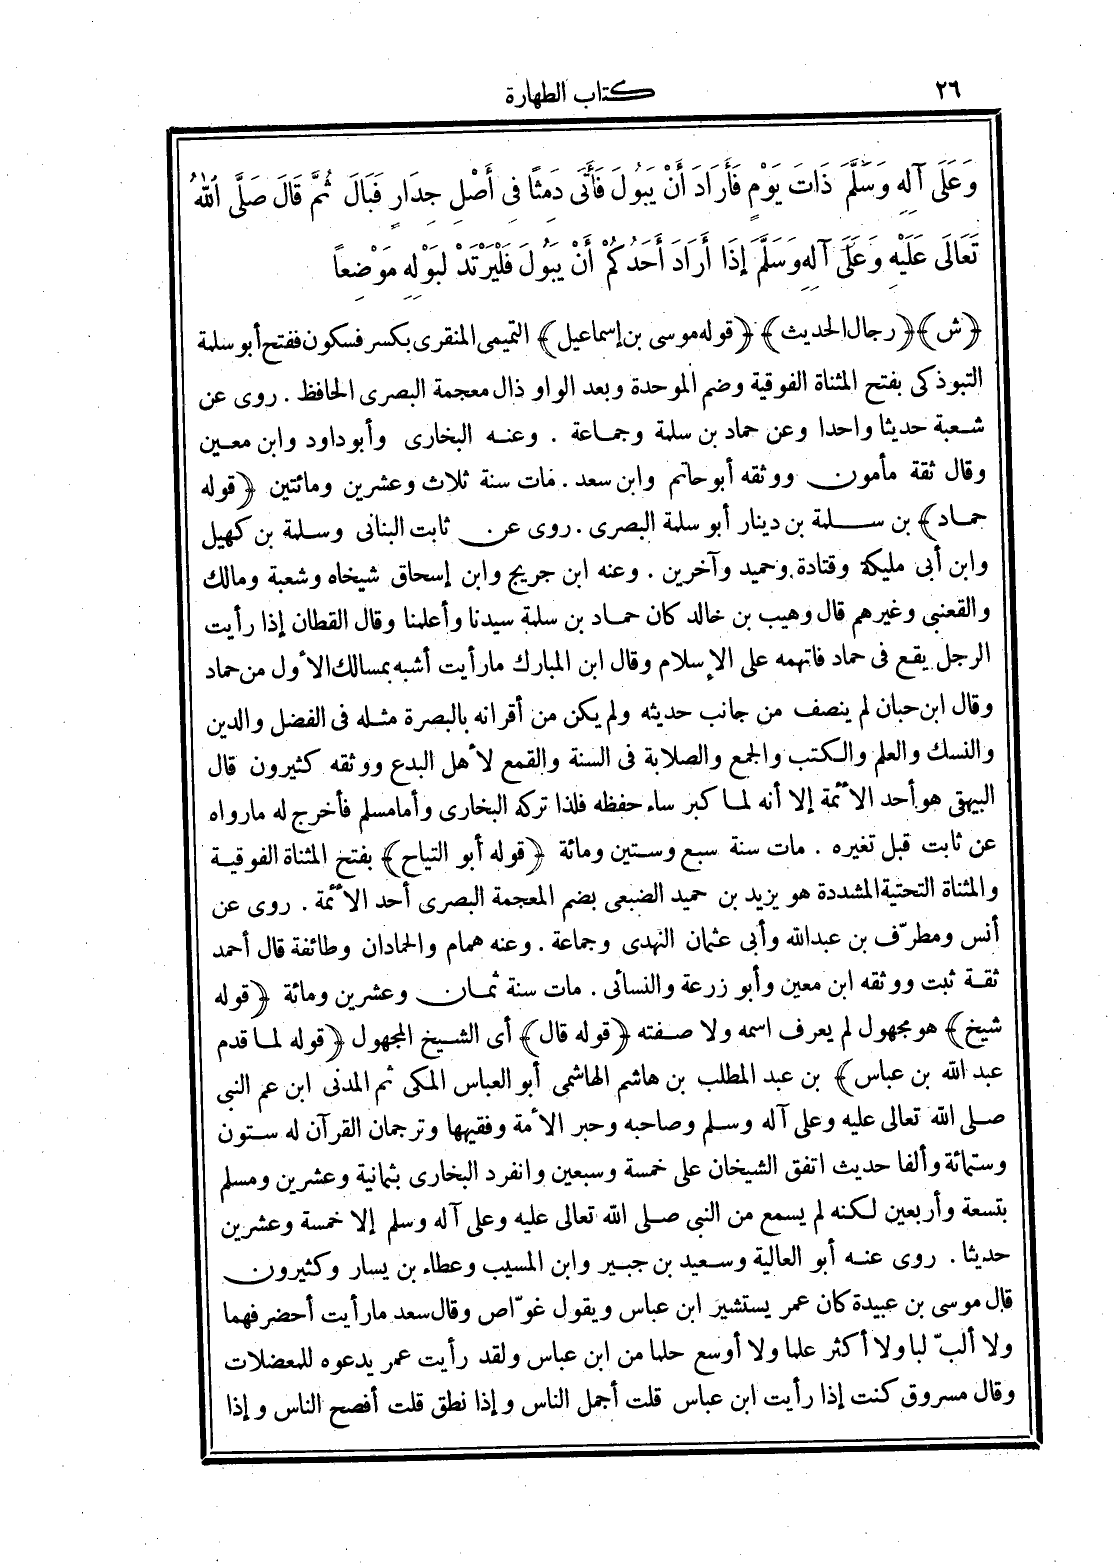 ٢٦
كتاب الطهارة
وَعَلَى آلِهِ وَسَلَّمَ ذَاتَ يَوْمٍ فَأَرَادَ أَنْ يَبُولَ فَأَتَى دَمِثًا فِى أَصْلِ جِدَارٍ فَبَالَ ثُمَّ قَالَ صَلَّى اللهُ
تَعَالَى عَلَيْهِ وَعَلَى آلِهِ وَسَلَّمَ إِذَا أَرَادَ أَحَدُكُمْ أَنْ يَبُولَ فَلْيَرْتَدْ لِبَوْلِهِ مَوْضِعاً
﴿ش﴾ ﴿رجال الحديث﴾ ﴿قوله موسى بن إسماعيل﴾ التميمى المنقرى بكسر فسكون ففتح أبو سلمة
التبوذكى بفتح المثناة الفوقية وضم الموحدة وبعد الواو ذال معجمة البصرى الحافظ . روى عن
شعبة حديثا واحدا وعن حماد بن سلمة وجماعة . وعنه البخارى وأبو داود وابن معين
وقال ثقة مأمون ووثقه أبو حاتم وابن سعد . مات سنة ثلاث وعشرين ومائتين ﴿قوله
حماد﴾ بن سلمة بن دينار أبو سلمة البصرى . روى عن ثابت البنانى وسلمة بن كهيل
وابن أبى مليكة وقتادة وحميد وآخرين . وعنه ابن جريج وابن إسحاق شيخاه وشعبة ومالك
والقعنبى وغيرهم قال وهيب بن خالد كان حماد بن سلمة سيدنا وأعلمنا وقال القطان إذا رأيت
الرجل يقع فى حماد فاتهمه على الإسلام وقال ابن المبارك مارأيت أشبه بمسالك الأول من حماد
وقال ابن حبان لم ينصف من جانب حديثه ولم يكن من أقرانه بالبصرة مثله فى الفضل والدين
والنسك والعلم والكتب والجمع والصلابة فى السنة والقمع لأهل البدع ووثقه كثيرون قال
البيهقى هو أحد الأئمة إلا أنه لما كبر ساء حفظه فلذا تركه البخارى وأما مسلم فأخرج له مارواه
عن ثابت قبل تغيره . مات سنة سبع وستين ومائة ﴿قوله أبو التياح﴾ بفتح المثناة الفوقية
والمثناة التحتية المشددة هو يزيد بن حميد الضبعى بضم المعجمة البصرى أحد الأئمة . روى عن
أنس ومطرّف بن عبدالله وأبى عثمان النهدى وجماعة . وعنه همام والحمادان وطائفة قال أحمد
ثقة ثبت ووثقه ابن معين وأبو زرعة والنسائى . مات سنة ثمان وعشرين ومائة ﴿قوله
شيخ﴾ هو مجهول لم يعرف اسمه ولا صفته ﴿قوله قال﴾ أى الشيخ المجهول ﴿قوله لما قدم
عبد الله بن عباس﴾ بن عبد المطلب بن هاشم الهاشمى أبو العباس المكى ثم المدنى ابن عم النبى
صلى الله تعالى عليه وعلى آله وسلم وصاحبه وحبر الأمة وفقيهها وترجمان القرآن له ستون
وستمائة وألفا حديث اتفق الشيخان على خمسة وسبعين وانفرد البخارى بثمانية وعشرين ومسلم
بتسعة وأربعين لكنه لم يسمع من النبى صلى الله تعالى عليه وعلى آله وسلم إلا خمسة وعشرين
حديثا . روى عنه أبو العالية وسعيد بن جبير وابن المسيب وعطاء بن يسار وكثيرون
قال موسى بن عبيدة كان عمر يستشير ابن عباس ويقول غوّاص وقال سعد مارأيت أحضر فهما
ولا ألبّ لبا ولا أكثر علما ولا أوسع حلما من ابن عباس ولقد رأيت عمر يدعوه للمعضلات
وقال مسروق كنت إذا رأيت ابن عباس قلت أجمل الناس وإذا نطق قلت أفصح الناس وإذا